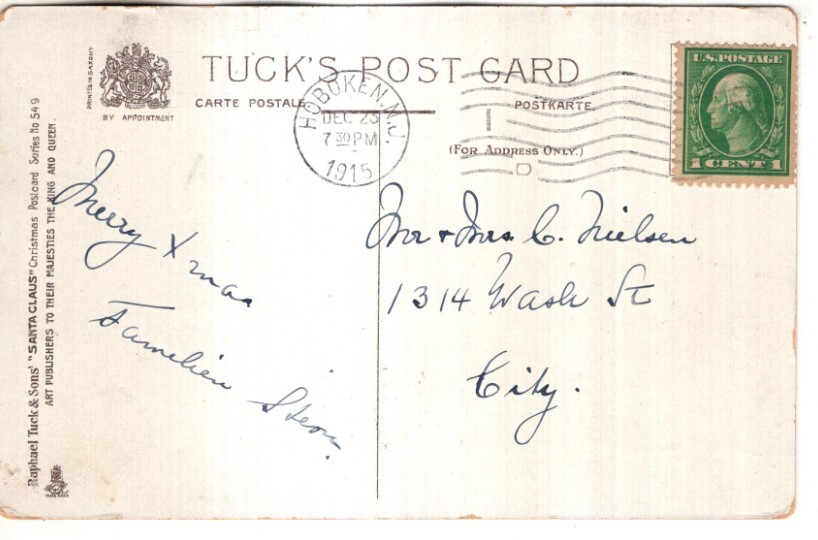 TUCK'S POST CARD
CARTE POSTALE
POSTKARTE.
(FOR ADDRESS ONLY.)
PRINTED IN SAXONY
BY APPOINTMENT
HOBOKEN, N.J.
DEC 23
7 30 PM
1915
1
D
U.S. POSTAGE
1 CENT 1
Raphael Tuck & Sons' "SANTA CLAUS" Christmas Postcard Series No 549
ART PUBLISHERS TO THEIR MAJESTIES THE KING AND QUEEN.
Merry Xmas
Familien
Mr & Mrs C. Nielsen
1314 Wash St
City.